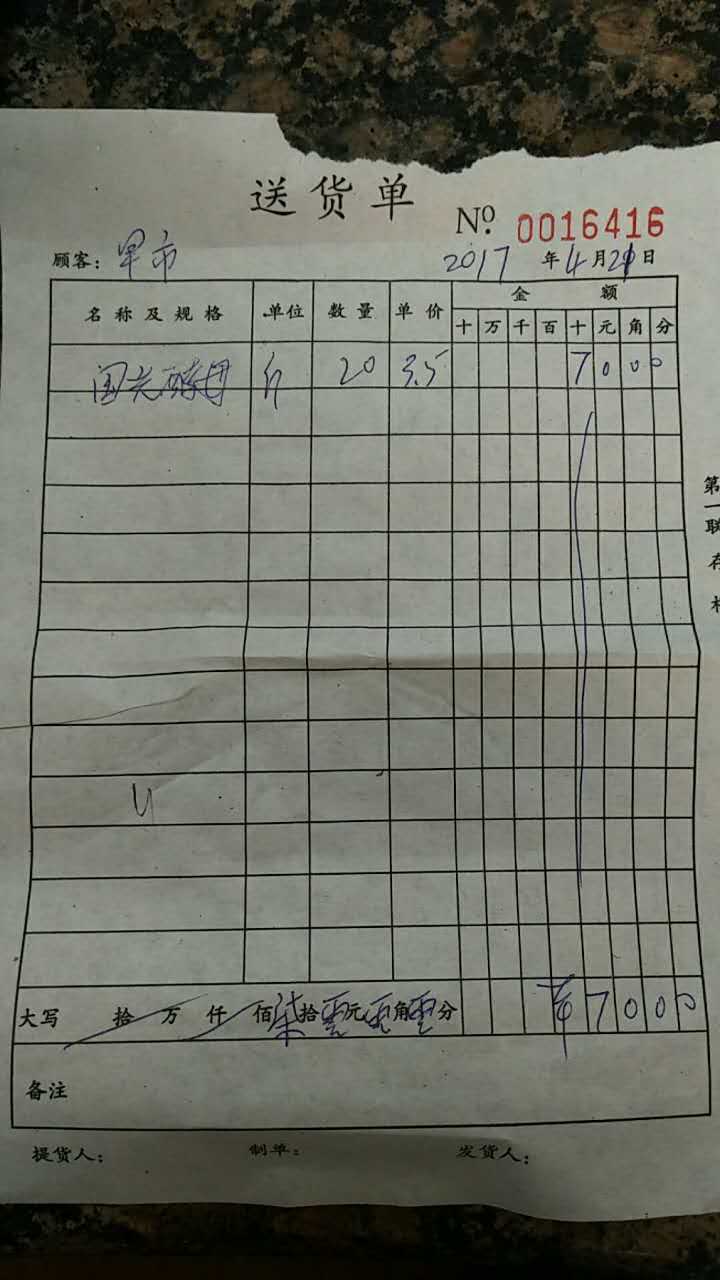 送货单
No. 0016416
顾客: 早市 2017年4月21日
名称及规格 单位 数量 单价 金额
十 万 千 百 十 元 角 分
20 3.5 7 0 0 0
大写 拾 万 仟 佰 柒拾 零元 零角 零分 ¥ 7 0 0 0
备注
提货人: 制单: 发货人:
第一联 存